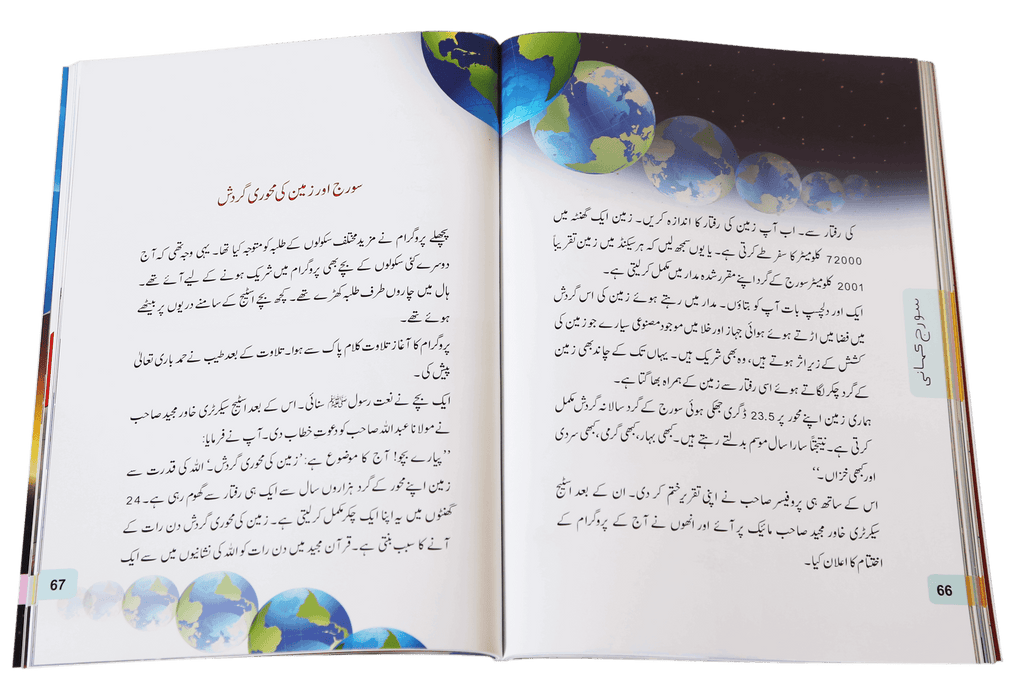 کی رفتار سے۔ اب آپ زمین کی رفتار کا اندازہ کریں۔ زمین ایک گھنٹہ میں
72000 کلومیٹر کا سفر طے کرتی ہے۔ یا یوں سمجھ لیں کہ ہر سیکنڈ میں زمین تقریباً
2001 کلومیٹر سورج کے گرد اپنے مقرر شدہ مدار میں مکمل کر لیتی ہے۔
ایک اور دلچسپ بات آپ کو بتاؤں۔ مدار میں رہتے ہوئے زمین کی اس گردش
میں فضا میں اڑتے ہوئے ہوائی جہاز اور خلا میں موجود مصنوعی سیارے جو زمین کی
کشش کے زیر اثر ہوتے ہیں، وہ بھی شریک ہیں۔ یہاں تک کے چاند بھی زمین
کے گرد چکر لگاتے ہوئے اسی رفتار سے زمین کے ہمراہ بھاگتا ہے۔
ہماری زمین اپنے محور پر 23.5 ڈگری جھکی ہوئی سورج کے گرد سالانہ گردش مکمل
کرتی ہے۔ نتیجتاً سارا سال موسم بدلتے رہتے ہیں۔ کبھی بہار، کبھی گرمی، کبھی سردی
اور کبھی خزاں۔‘‘
اس کے ساتھ ہی پروفیسر صاحب نے اپنی تقریر ختم کر دی۔ ان کے بعد اسٹیج
سیکرٹری خاور مجید صاحب مائیک پر آئے اور انھوں نے آج کے پروگرام کے
اختتام کا اعلان کیا۔
سورج کہانی
66
سورج اور زمین کی محوری گردش
پچھلے پروگرام نے مزید مختلف سکولوں کے طلبہ کو متوجہ کیا تھا۔ یہی وجہ تھی کہ آج
دوسرے کئی سکولوں کے بچے بھی پروگرام میں شریک ہونے کے لیے آئے تھے۔
ہال میں چاروں طرف طلبہ کھڑے تھے۔ کچھ بچے اسٹیج کے سامنے دریوں پر بیٹھے
ہوئے تھے۔
پروگرام کا آغاز تلاوت کلام پاک سے ہوا۔ تلاوت کے بعد طیب نے حمد باری تعالیٰ
پیش کی۔
ایک بچے نے نعت رسول ﷺ سنائی۔ اس کے بعد اسٹیج سیکرٹری خاور مجید صاحب
نے مولانا عبد اللہ صاحب کو دعوتِ خطاب دی۔ آپ نے فرمایا:
’’پیارے بچو! آج کا موضوع ہے: ’زمین کی محوری گردش۔‘ اللہ کی قدرت سے
زمین اپنے محور کے گرد ہزاروں سال سے ایک ہی رفتار سے گھوم رہی ہے۔ 24
گھنٹوں میں یہ اپنا ایک چکر مکمل کر لیتی ہے۔ زمین کی محوری گردش دن رات کے
آنے کا سبب بنتی ہے۔ قرآن مجید میں دن رات کو اللہ کی نشانیوں میں سے ایک
67